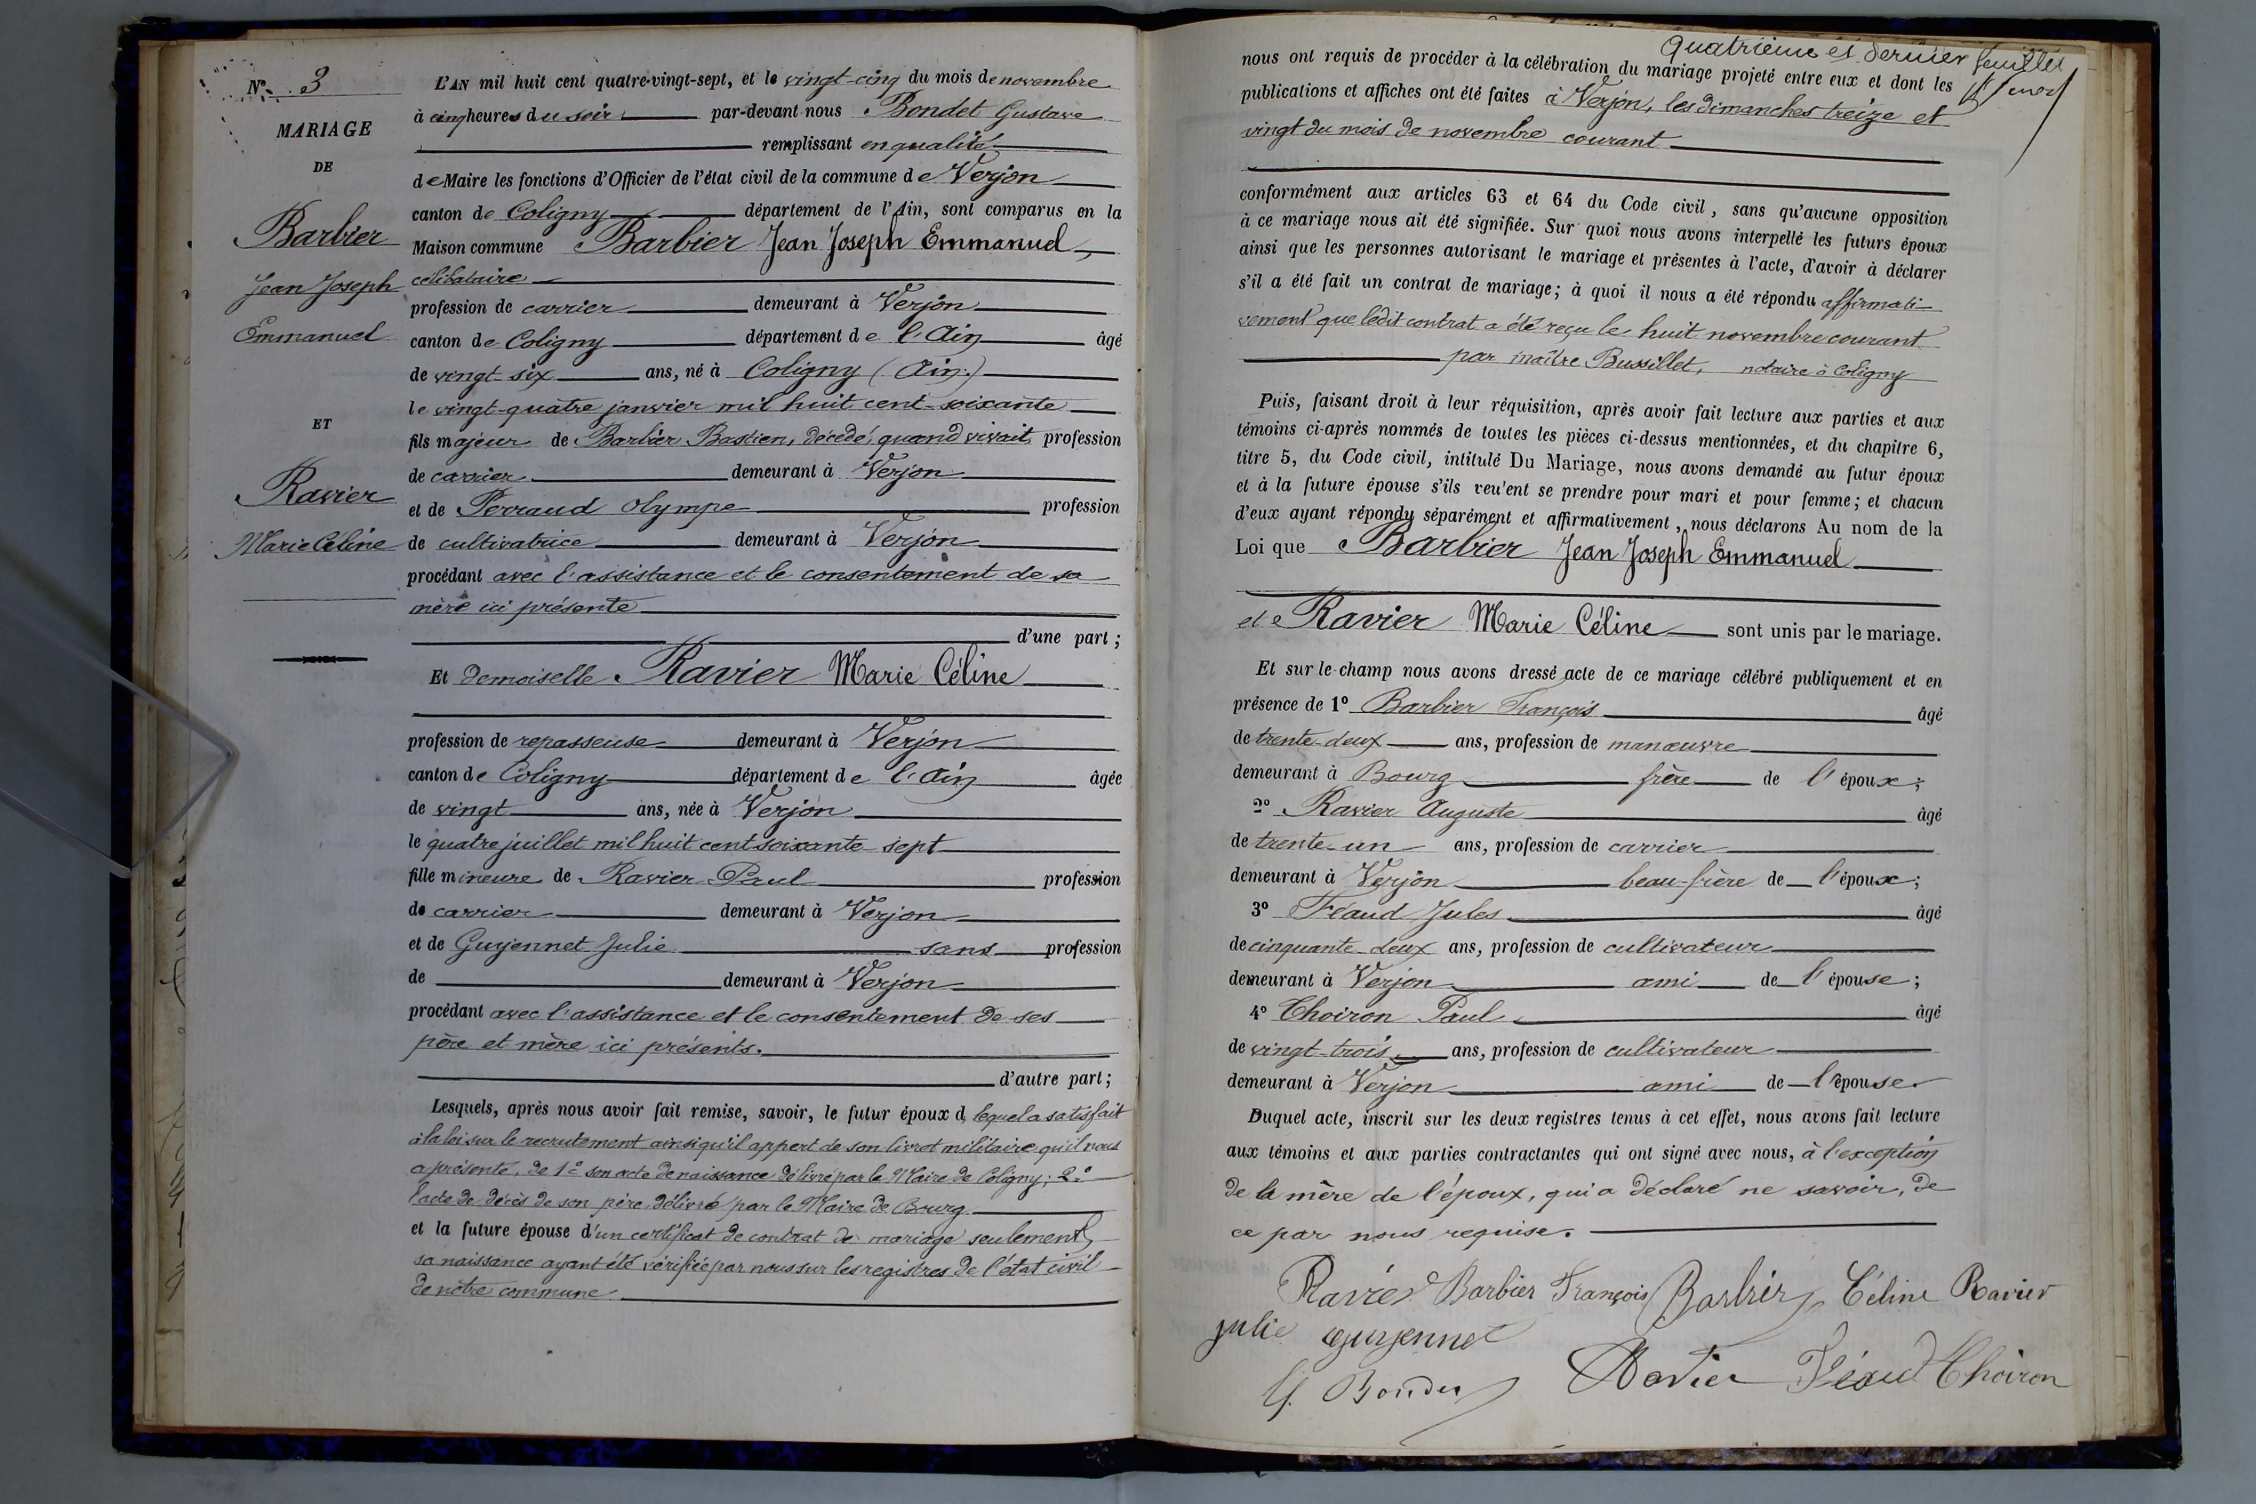 N° 3
MARIAGE
DE
Barbier
Jean Joseph
Emmanuel
ET
Ravier
Marie Céline
L'AN mil huit cent quatre-vingt-sept, et le vingt-cinq du mois de novembre
à cinq heures du soir par-devant nous Bondet Gustave
remplissant en qualité
de Maire les fonctions d'Officier de l'état civil de la commune de Verjon
canton de Coligny département de l'Ain, sont comparus en la
Maison commune Barbier Jean Joseph Emmanuel,
célibataire
profession de carrier demeurant à Verjon
canton de Coligny département de l'Ain âgé
de vingt-six ans, né à Coligny (Ain)
le vingt-quatre janvier mil huit cent-soixante
fils majeur de Barbier Bastien, décédé, quand vivait, profession
de carrier demeurant à Verjon
et de Perraud Olympe profession
de cultivatrice demeurant à Verjon
procédant avec l'assistance et le consentement de sa
mère ici présente
d'une part ;
Et demoiselle Ravier Marie Céline
profession de repasseuse demeurant à Verjon
canton de Coligny département de l'Ain âgée
de vingt ans, née à Verjon
le quatre juillet mil huit cent soixante sept
fille mineure de Ravier Paul profession
de carrier demeurant à Verjon
et de Guyennet Julie sans profession
de demeurant à Verjon
procédant avec l'assistance et le consentement de ses
père et mère ici présents.
d'autre part ;
Lesquels, après nous avoir fait remise, savoir, le futur époux d lequel a satisfait
à la loi sur le recrutement ainsi qu'il appert de son livret militaire qu'il nous
a présenté, de 1° son acte de naissance délivré par le Maire de Coligny ; 2°
l'acte de décès de son père, délivré par le Maire de Bourg
et la future épouse d'un certificat de contrat de mariage seulement,
sa naissance ayant été vérifiée par nous sur les registres de l'état civil
de notre commune
Quatrième et dernier feuillet
nous ont requis de procéder à la célébration du mariage projeté entre eux et dont les
publications et affiches ont été faites à Verjon, les dimanches treize et
vingt du mois de novembre courant
conformément aux articles 63 et 64 du Code civil, sans qu'aucune opposition
à ce mariage nous ait été signifiée. Sur quoi nous avons interpellé les futurs époux
ainsi que les personnes autorisant le mariage et présentes à l'acte, d'avoir à déclarer
s'il a été fait un contrat de mariage; à quoi il nous a été répondu affirmati-
vement que ledit contrat a été reçu le huit novembre courant
par maître Bussillet, notaire à Coligny
Puis, faisant droit à leur réquisition, après avoir fait lecture aux parties et aux
témoins ci-après nommés de toutes les pièces ci-dessus mentionnées, et du chapitre 6,
titre 5, du Code civil, intitulé Du Mariage, nous avons demandé au futur époux
et à la future épouse s'ils veu'ent se prendre pour mari et pour femme; et chacun
d'eux ayant répondu séparément et affirmativement, nous déclarons Au nom de la
Loi que Barbier Jean Joseph Emmanuel
et Ravier Marie Céline sont unis par le mariage.
Et sur-le-champ nous avons dressé acte de ce mariage célébré publiquement et en
présence de 1° Barbier François âgé
de trente-deux ans, profession de manœuvre
demeurant à Bourg frère de l'époux;
2° Ravier Auguste âgé
de trente-un ans, profession de carrier
demeurant à Verjon beau-frère de l'époux;
3° Féaud Jules âgé
de cinquante-deux ans, profession de cultivateur
demeurant à Verjon ami de l'épouse;
4° Choiron Paul âgé
de vingt-trois ans, profession de cultivateur
demeurant à Verjon ami de l'épouse
Duquel acte, inscrit sur les deux registres tenus à cet effet, nous avons fait lecture
aux témoins et aux parties contractantes qui ont signé avec nous, à l'exception
de la mère de l'époux, qui a déclaré ne savoir, de
ce par nous requise.
Ravier Barbier François Barbier Céline Ravier
julie guyennet
G. Bondet Ravier Féaud Choiron